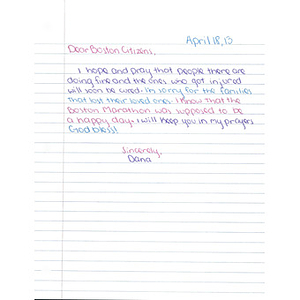 April 18, 13
Dear Boston Citizens,
I hope and pray that people there are
doing fine and the ones who got injured
will soon be cured. I'm sorry for the families
that lost their loved ones. I know that the
Boston Marathon was supposed to be
a happy day. I will keep you in my prayers
God bless!
Sincerely,
Dana